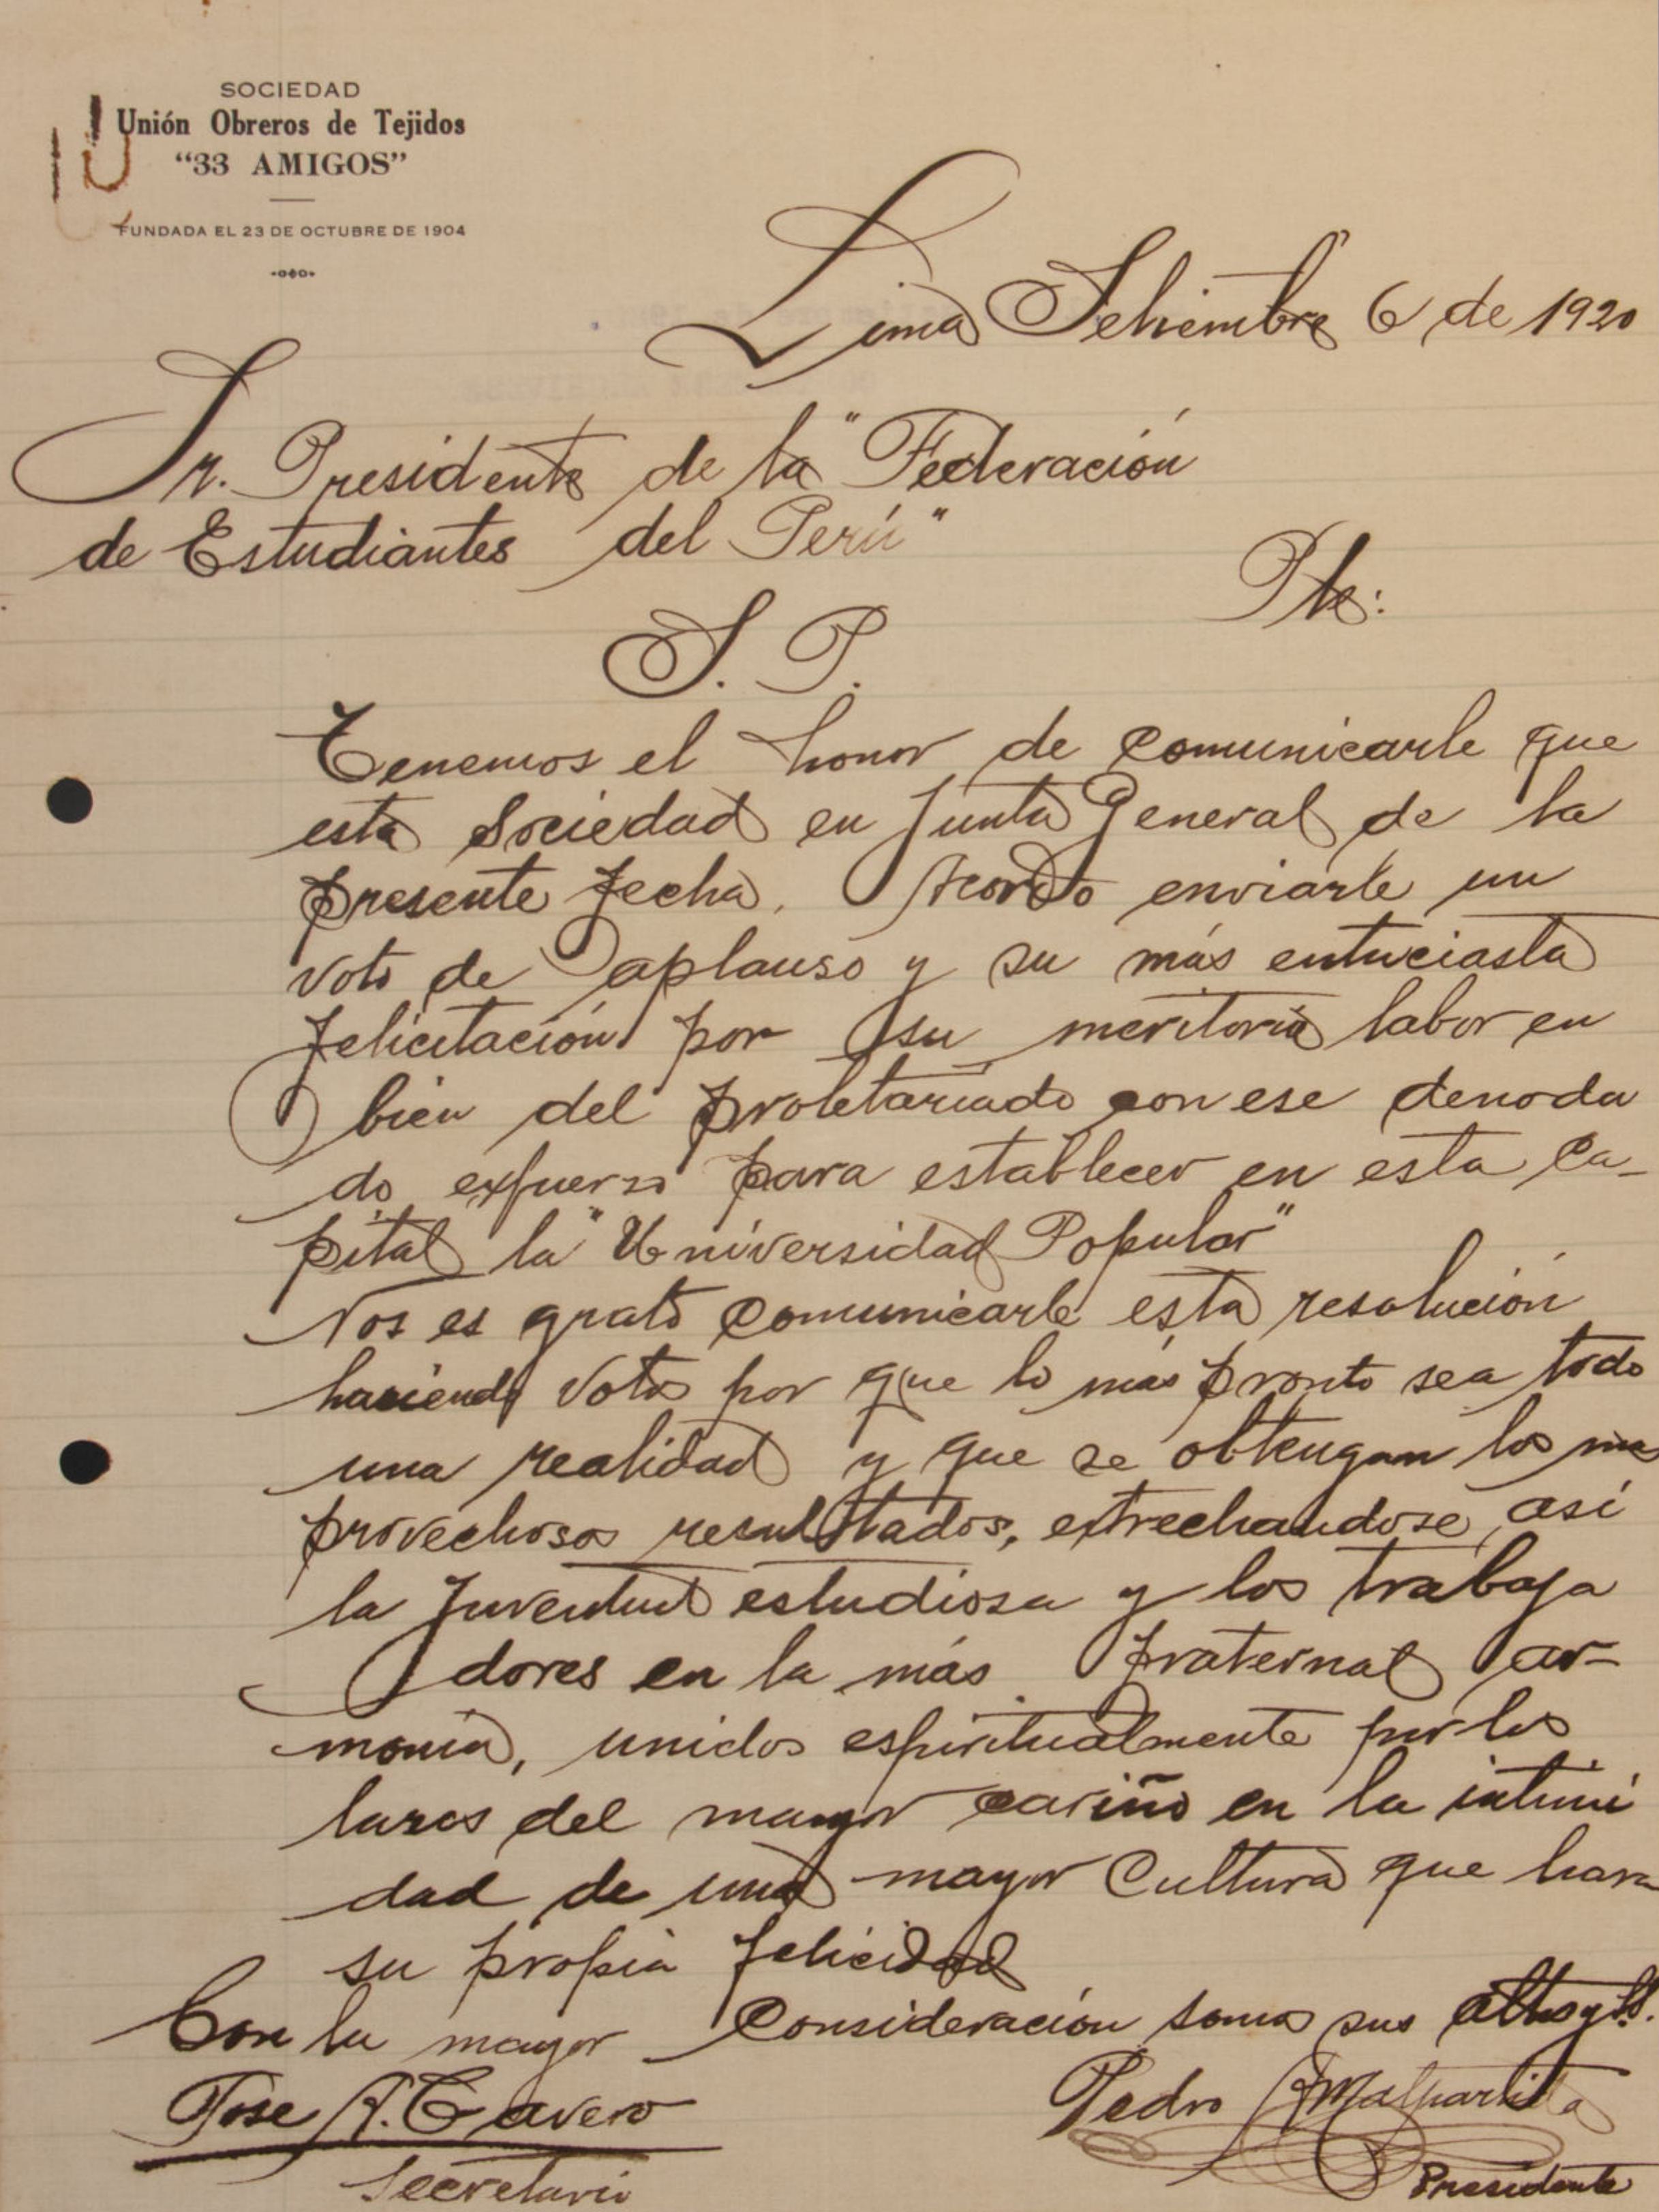 SOCIEDAD
Unión Obreros de Tejidos
"33 AMIGOS"
FUNDADA EL 23 DE OCTUBRE DE 1904
Lima Setiembre 6 de 1920
Sr. Presidente de la "Federación
de Estudiantes del Perú"
Pte:
S. P.
Tenemos el honor de comunicarle que
esta Sociedad en Junta General de la
presente fecha, Acordó enviarle un
voto de aplauso y su más entuciasta
felicitación por su meritoria labor en
bien del proletariado con ese denoda
do esfuerzo para establecer en esta Ca-
pital la "Universidad Popular"
Nos es grato comunicarle esta resolución
haciendo votos por que lo más pronto sea todo
una realidad y que se obtengan los mas
provechosos resultados, estrechandose así
la Juventud estudiosa y los trabaja
dores en la más fraternal ar-
monia, unidos espiritualmente por los
lazos del mayor cariño en la intimi
dad de una mayor Cultura que hara
su propia felicidad
Con la mayor Consideración somos sus attos y
Jose A. Cavero
Pedro Malpartida
Secretario
Presidente